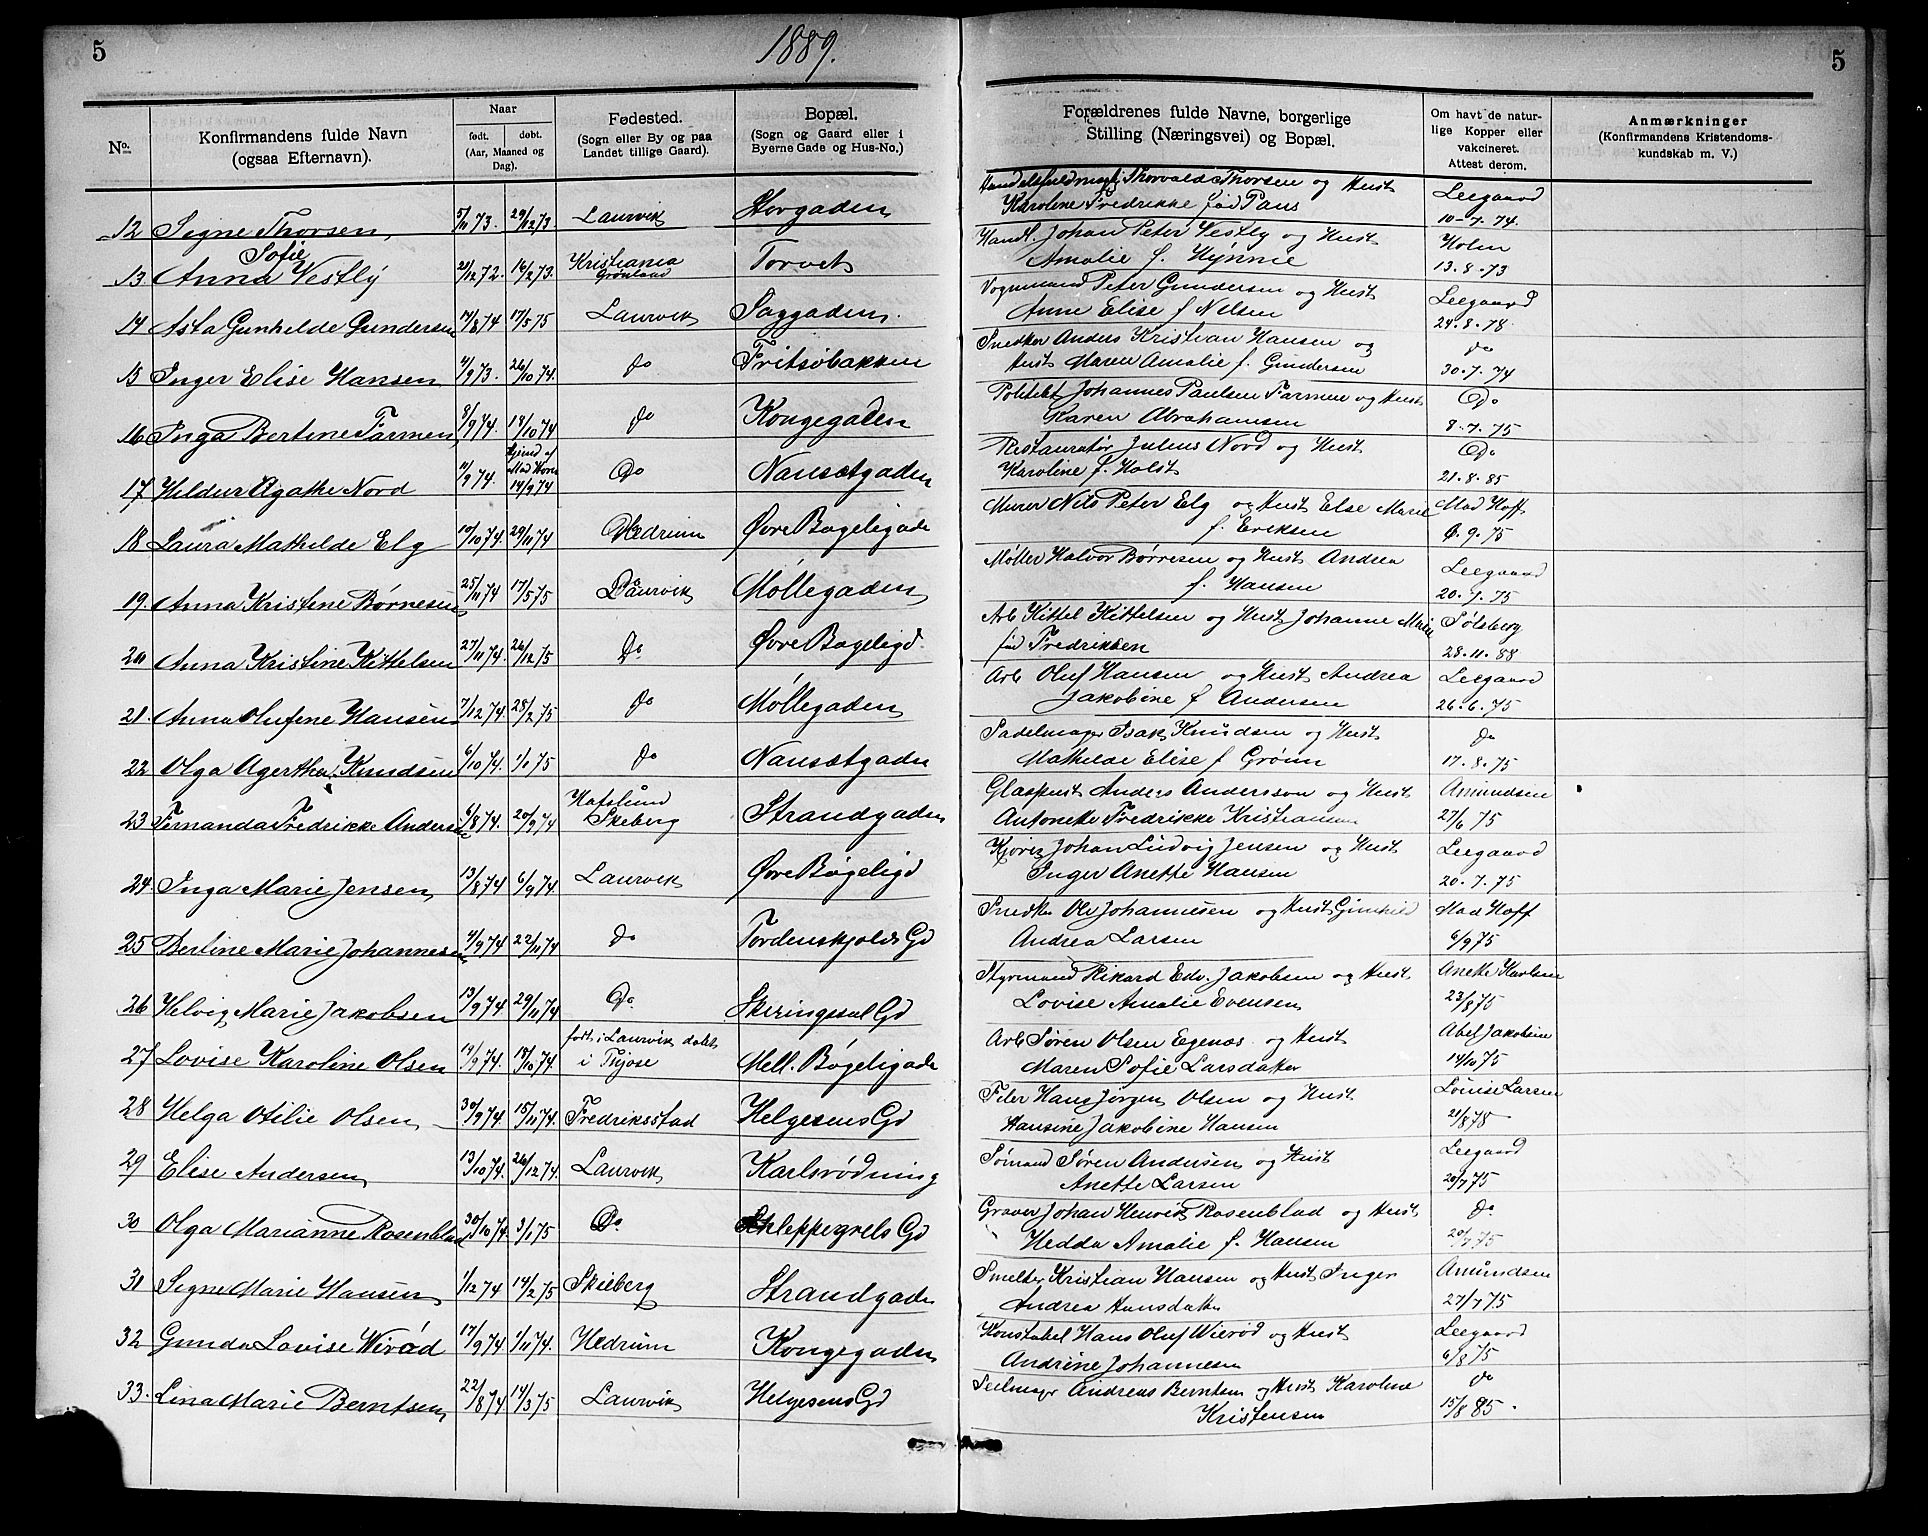 5
1889.
5
No.
Konfirmandens fulde Navn
(ogsaa Efternavn).
Naar
født.
døbt.
(Aar, Maaned og
Dag).
Fødested.
(Sogn eller By og paa
Landet tillige Gaard).
Bopæl.
(Sogn og Gaard eller i
Byerne Gade og Hus-No.)
Forældrenes fulde Navne, borgerlige
Stilling (Næringsvei) og Bopæl.
Om havt de natur-
lige Kopper eller
vakcineret.
Attest derom.
Anmærkninger
(Konfirmandens Kristendoms-
kundskab m. V.)
12 Signe Thorsen 5/11 73. 29/12 73. Laurvik Storgaden
Handelsfuldmægtig Thorvald Thorsen og Hust
Karoline Fredrikke fød Paus
Leegaard
10-7.74.
Sofie
13. Anna Vestly 21/12 72. 16/2 73. Kristiania Torvet
Grønland
Handl. Johan Peter Vestly og Hust
Amalie f. Hynne
Holm
13.8.73
14 Asta Gunhilde Gundersen 14/8 74 17/5 75 Laurvik Saggaden.
Vognmand Peter Gundersen og Hust
Anne Elise f Nilsen
Leegaard
24.8.78.
15 Inger Elise Hansen 4/9 73. 26/10 74. do Fritsøbakken
Snedker Anders Kristian Hansen og
Hust Maren Amalie f. Gundersen
do
30.7.74
16 Inga Bertine Farmen 8/9 74. 14/10 74 do Kongegaden
Politibt Johannes Paulsen Farmen og Hust
Karen Abrahamsen
Do
8.7.75
17 Hildur Agathe Nord 11/9 74. 14/9 74 Do Nansetgaden
Restauratør Julius Nord og Hust
Karoline f. Holst
Do
21.8.85
18 Laura Mathilde Elg 10/10 74. 29/11 74 Hedrum Øvre Bøgeligade
Murer Nils Peter Elg og Hust Else Marie
f. Eriksen
Mad Hoff
6.9.75
19. Anna Kristine Børresen 25/11 74 17/5 75 Laurvik Møllegaden
Møller Halvor Børresen og Hust Andrea
f. Hansen
Leegaard
20.7.75
20 Anna Kristine Kittelsen 27/11 74. 26/12 75 Do Øvre Bøgeligd.
Arb Kittel Kittelsen og Hust Johanne Marie
fød Fredriksen
Sølsberg
28.11.88
21. Anna Olufine Hansen 7/12 74. 28/2 75 do Møllegaden
Arb Oluf Hansen og Hust Andrea
Jakobine f Andersen
Leegaard
26.6.75
22 Olga Agerthea Knudsen 6/10 74. 1/1 75 do Nansetgaden
Sadelmager Isak Knudsen og Hust
Mathilde Elise f Grønn
do
17.8.75
23 Fernanda Fredrikke Andersen 6/8 74. 20/9 74 Hafslund Strandgaden
Skeberg
Glaspust Anders Andersson og Hust
Antonette Fredrikke Kristiansen
Amundsen
27/6 75
24. Inga Marie Jensen 13/8 74 6/9 74. Laurvik Øvre Bøgeligd
Kjører Johan Ludvig Jensen og Hust
Inger Anette Hansen
Leegaard
20.7.75
25 Bertine Marie Johannesen 4/9 74 22/11 74 do Tordenskjolds Gd
Snedker Ole Johannesen og Hust Gunhild
Andrea Larsen
Mad Hoff
6/9 75
26 Helvig Marie Jakobsen 13/9 74. 29/11 74 Do. Skiringssal Gd
Styrmand Rikard Edv. Jakobsen og Hust
Lovise Amalie Evensen
Anette Karlsen
23/8 75
27 Lovise Karoline Olsen 14/9 74. 18/10 74. født i Laurvik døbt
i Thjose Mell. Bøgeligade
Arb Søren Olsen Egenæs og Hust
Maren Sofie Larsdatter
Abel Jakobsen
14/10 75
28 Helga Otilie Olsen 30/9 74. 15/11 74. Fredriksstad Helgesens Gd
Filer Hans Jørgen Olsen og Hust
Hansine Jakobine Hansen
Louise Larsen
21/8 78
29 Elise Andersen 13/10 74. 26/12 74. Laurvik Karlsrødning
Sømand Søren Andersen og Hust
Anette Larsen
Leegaard
20/7 75
30 Olga Marianne Rosenblad 30/10 74. 3/1 75 Do. Schleppegrels Gd
Graver Johan Henrik Rosenblad og Hust
Hedda Amalie f. Hansen
do
20/7 75
31 Signe Marie Hansen 1/12 74 14/2 75 Skieberg Strandgaden
Smelter Kristian Hansen og Hust Inger
Andrea Hansdatter
Amundsen
27/7 75
32 Gunda Lovise Wirød 17/9 74. 1/11 74. Hedrum Kongegaden
Konstabel Hans Oluf Wierød og Hust
Andrine Johannesen
Leegaard
6/8 75
33. Lina Marie Berntsen 22/8 74 14/3 75 Laurvik Helgesens Gd
Seilmager Andreas Berntsen og Hust Karoline
Kristensen
do
15/8 85.